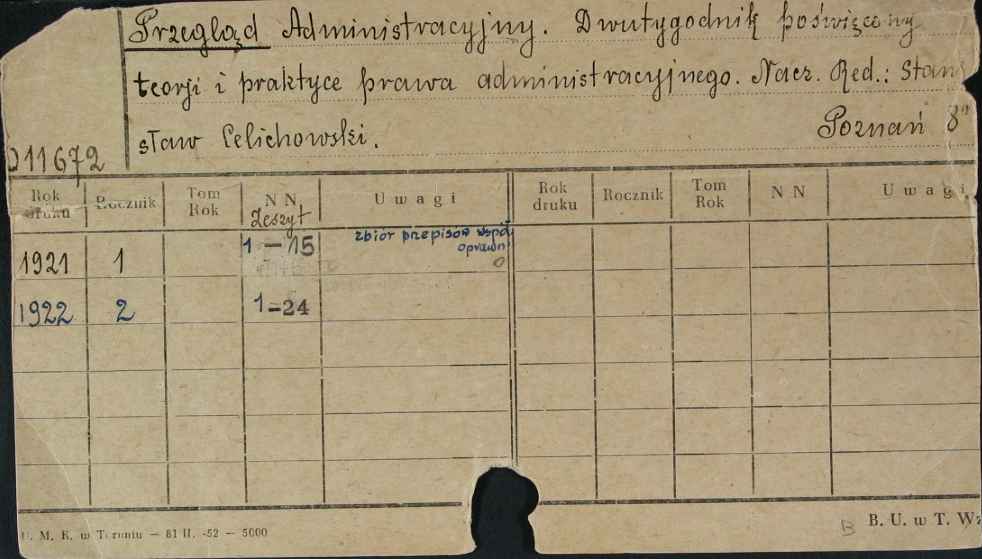 Przegląd Administracyjny. Dwutygodnik poświęcony
teorji i praktyce prawa administracyjnego. Nacz. Red.: Stani
sław Celichowski.
Poznań 8°
011672
Rok druku Rocznik Tom Rok N N Zeszyt Uwagi Rok druku Rocznik Tom Rok N N Uwagi
1921 1 1 – 15 zbiór przepisów wspó
oprawn
1922 2 1–24
U. M. K. w Toruniu — 81 II. -52 — 5000
B B. U. w T. Wz